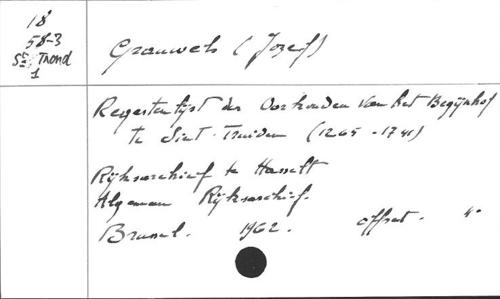 18
58-3
St Trond
1
Grauwels (Jozef)
Regestenlijst der Oorkonden van het Begijnhof
te Sint-Truiden (1265-1741)
Rijksarchief te Hasselt
Algemeen Rijksarchief.
Brussel. 1962. offset. 4°